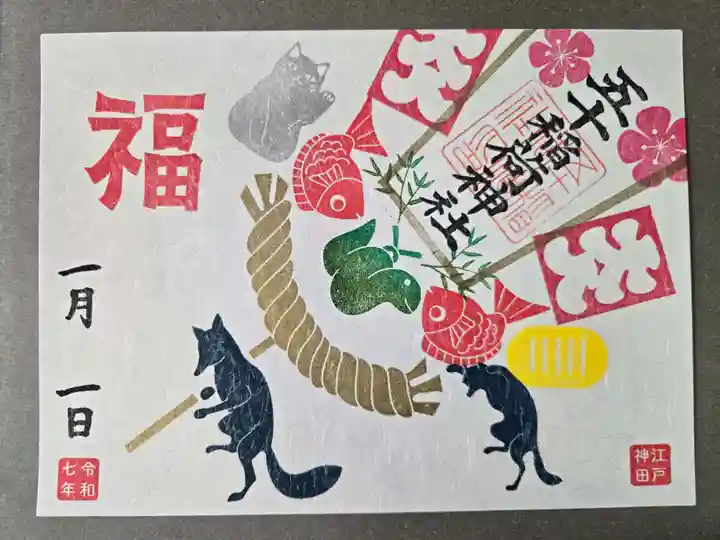 五十稲荷神社
福
一月一日
令和
七年
江戸
神田